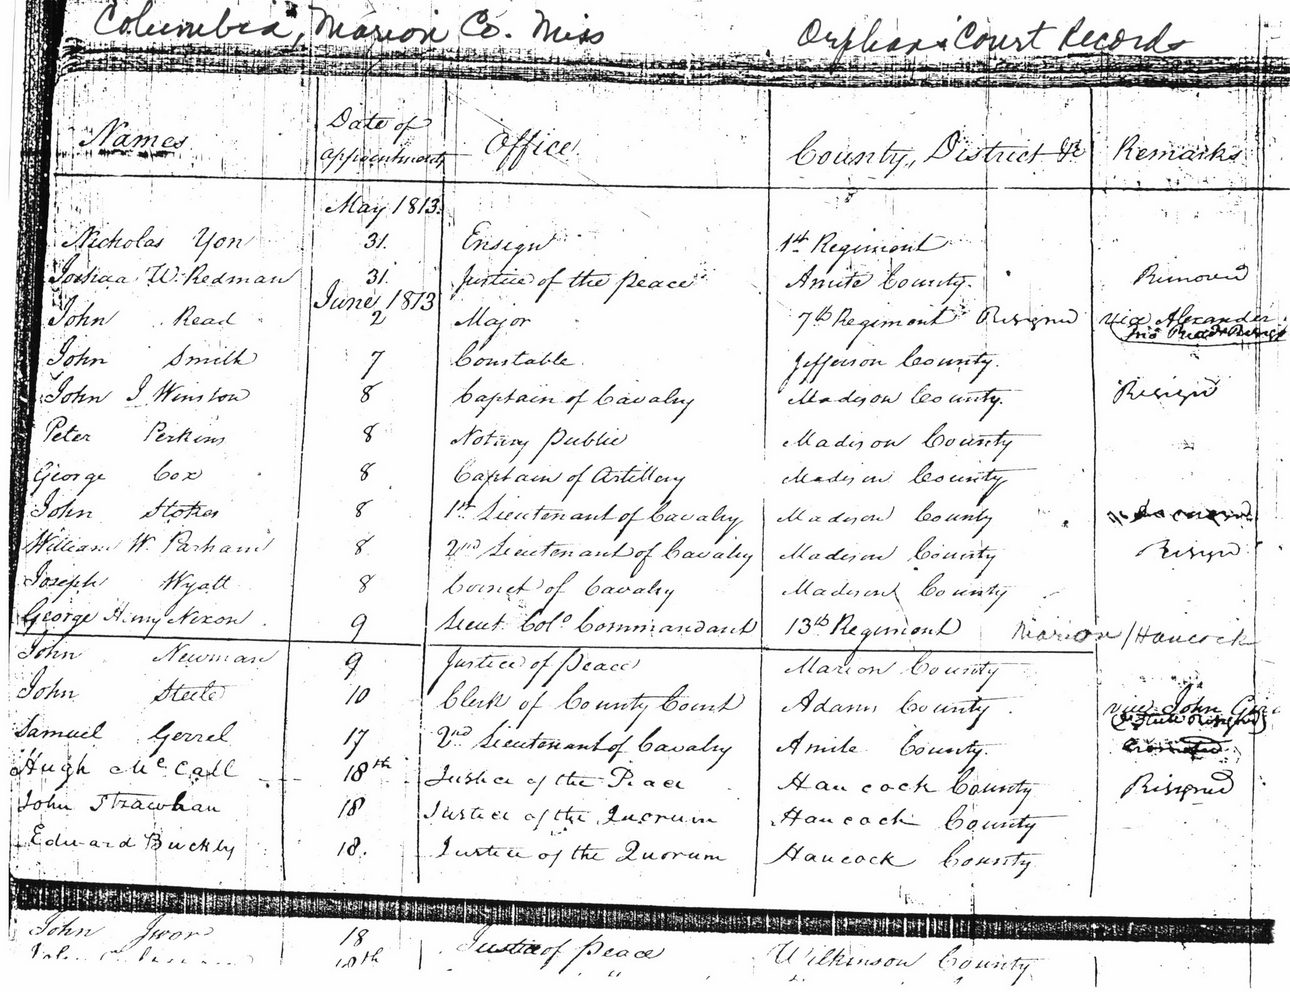 Columbia, Marion Co. Miss Orphans Court Records
Names Date of appointments Office County, District &c Remarks
May 1813.
Nicholas Yon 31. Ensign 1st Regiment
Joshua W. Redman 31. Justice of the Peace Amite County. Removed
June 1813
John Read 2 Major 7th Regiment Resigned vice Alexander
Jno Read Resigd
John Smith 7 Constable Jefferson County.
John J Winston 8 Captain of Cavalry Madison County. Resign
Peter Perkins 8 Notary Public Madison County
George Cox 8 Captain of Artillery Madison County
John Stokes 8 1st Lieutenant of Cavalry Madison County
William W. Parham 8 2nd Lieutenant of Cavalry Madison County Resign
Joseph Wyatt 8 Cornet of Cavalry Madison County
George Henry Nixon 9 Lieut Colo Commandant 13th Regiment Marion / Hancock
John Newman 9 Justice of Peace Marion County
John Steele 10 Clerk of County Court Adams County. vice John
Steele Resigned
Samuel Gerrel 17 2nd Lieutenant of Cavalry Amite County.
Hugh McCall 18th Justice of the Peace Hancock County Resigned
John Strawhan 18 Justice of the Quorum Hancock County
Edward Buckley 18. Justice of the Quorum Hancock County
John 18 Justice of Peace Wilkinson County
John 18th " "